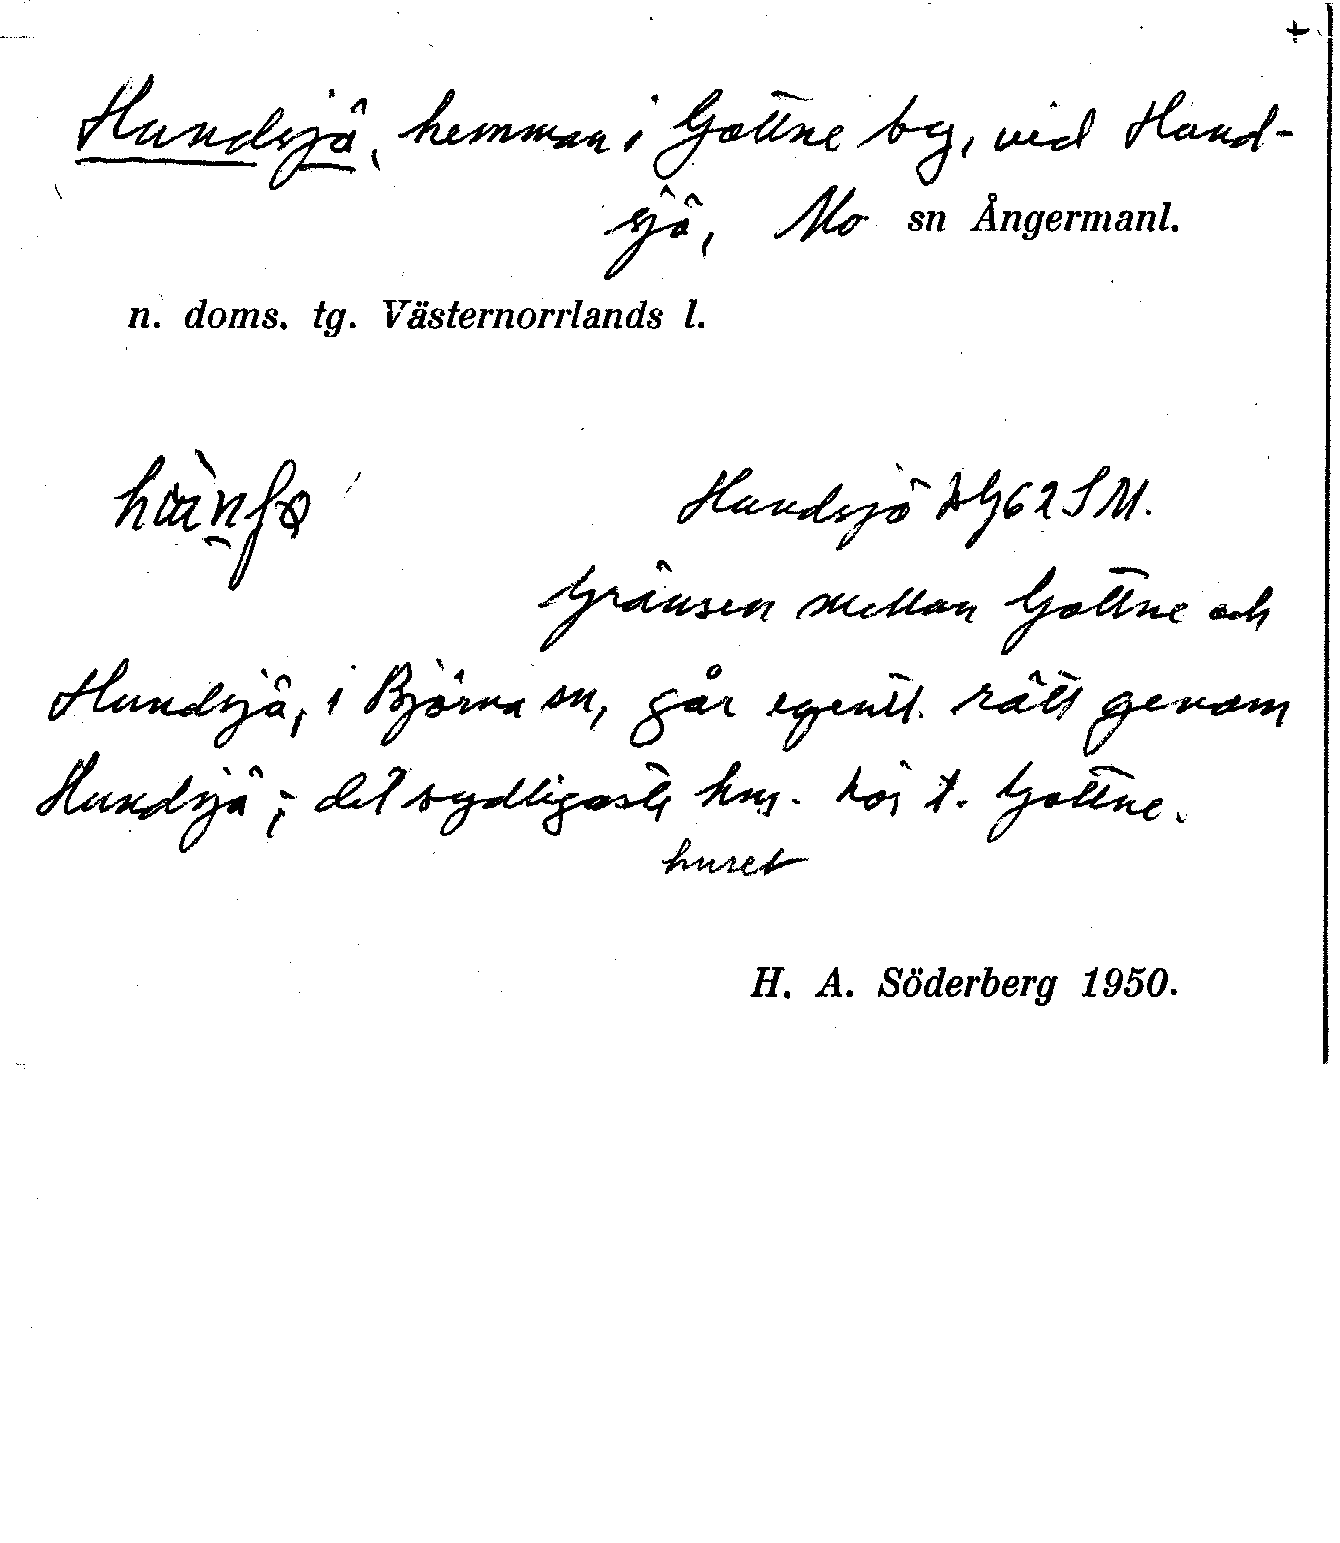 Hundsjö, hemman i Gottne by, vid Hund-
sjö, Mo sn Ångermanl.
n. doms. tg. Västernorrlands l.
Hundsjö 62 SM.
Gränsen mellan Gottne och
Hundsjö, i Björna sn, går egentl. rätt genom
Hundsjö; det sydligaste hus. hör t. Gottne.
huset
H. A. Söderberg 1950.